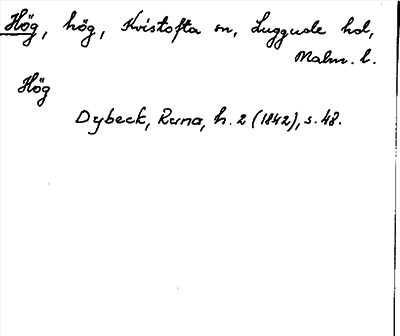 Hög, hög, Kristofta sn, Luggude hd,
Malm. l.
Hög
Dybeck, Runa, h. 2 (1842), s. 48.